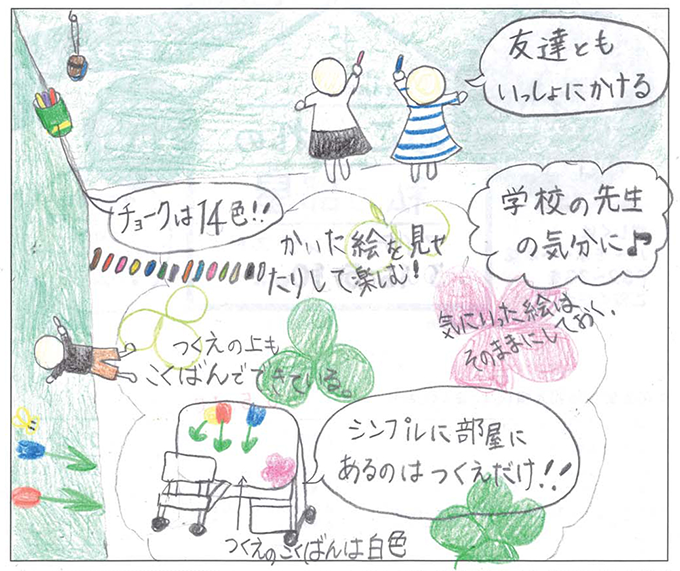 友達とも
いっしょにかける
学校の先生
の気分に♪
チョークは14色!!
かいた絵を見せ
たりして楽しむ!
気にいった絵は、
そのままにしておく。
つくえの上も
こくばんでできている。
シンプルに部屋に
あるのはつくえだけ!!
つくえのこくばんは白色